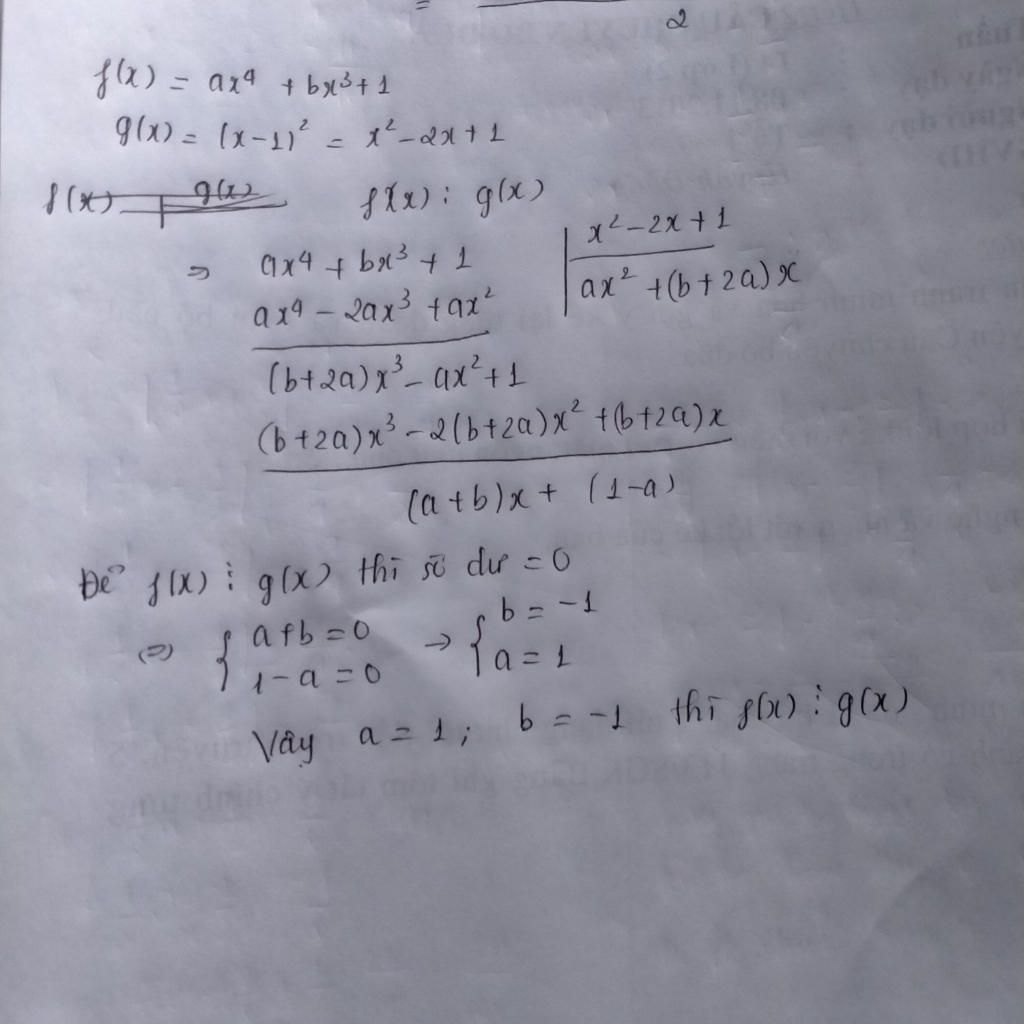 = 2
f(x) = ax⁴ + bx³ + 1
g(x) = (x-1)² = x² - 2x + 1
f(x) g(x) f(x) ⋮ g(x)
=> ax⁴ + bx³ + 1 | x² - 2x + 1
ax⁴ - 2ax³ + ax² | ax² + (b+2a)x
(b+2a)x³ - ax² + 1
(b+2a)x³ - 2(b+2a)x² + (b+2a)x
(a+b)x + (1-a)
Để f(x) ⋮ g(x) thì số dư = 0
(=) { a+b = 0 → { b = -1
1-a = 0 a = 1
Vây a = 1; b = -1 thì f(x) ⋮ g(x)